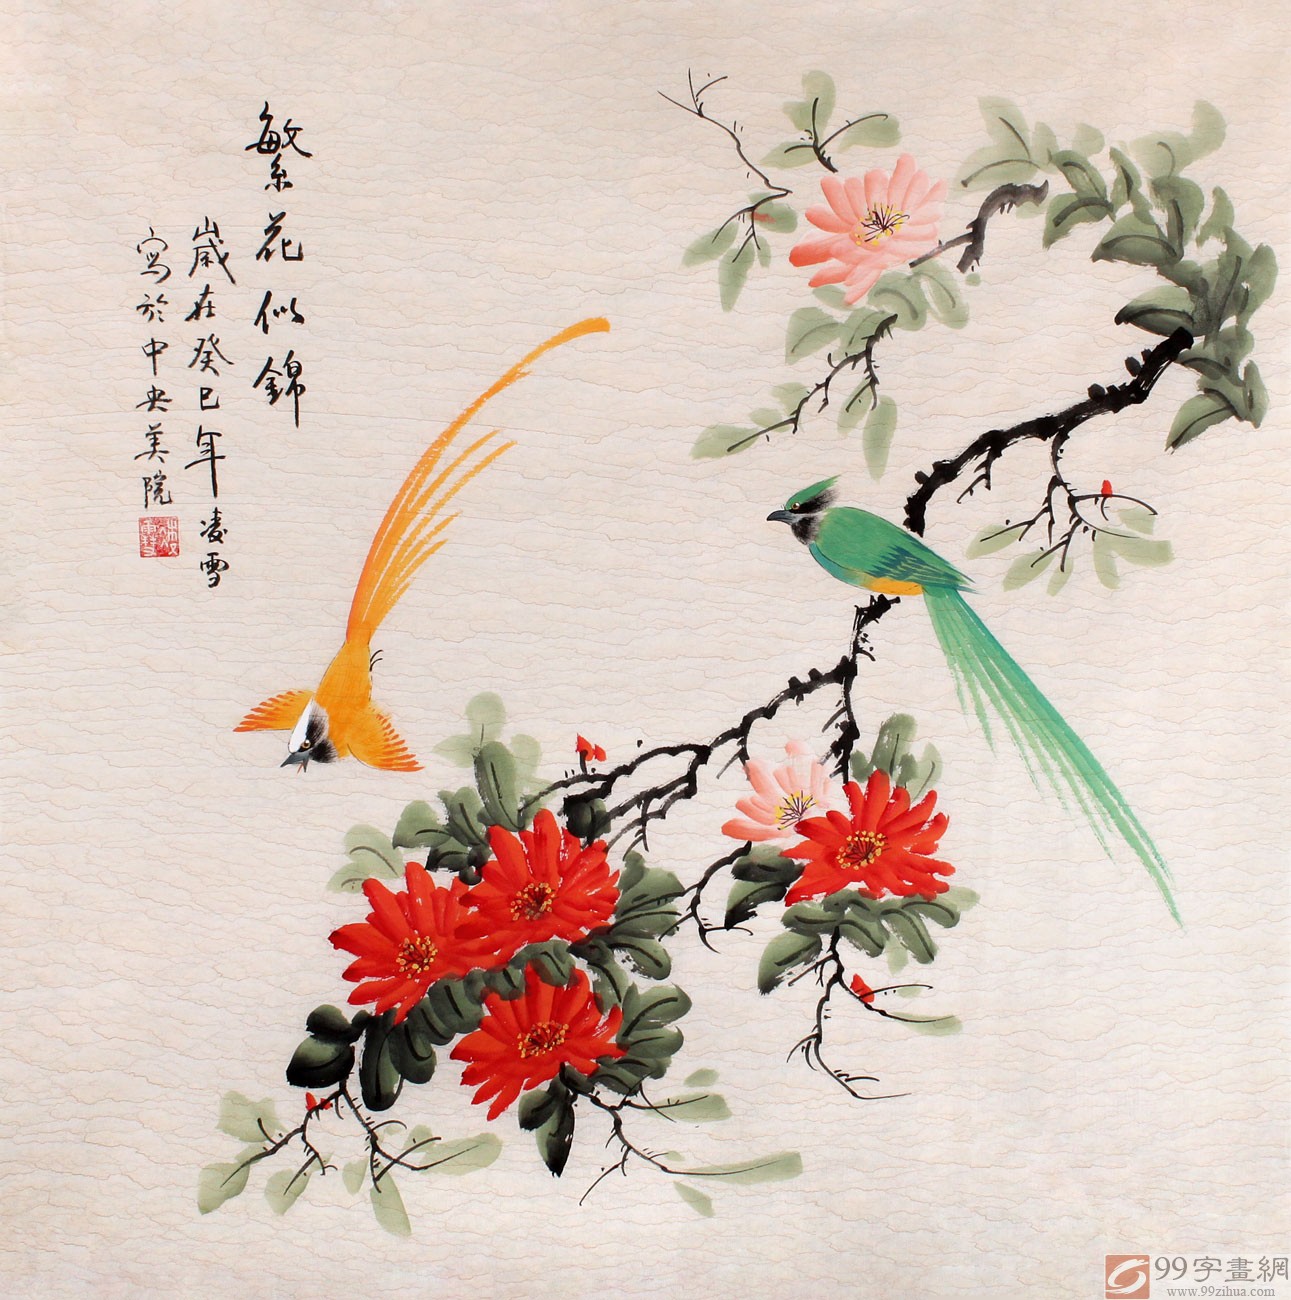 繁花似錦
歲在癸巳年凌雪
寫於中央美院
99字畫網
www.99zihua.com